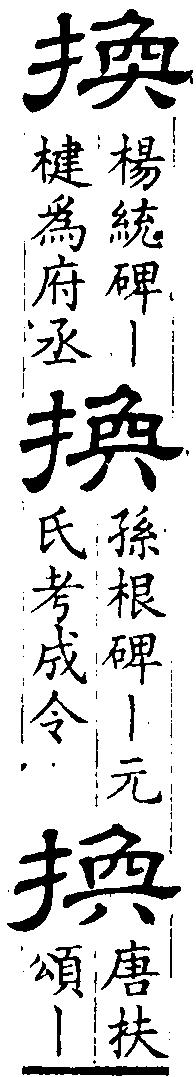 換
楊統碑丨
楗為府丞
換
孫根碑丨元
氏考成令
換
唐扶
頌丨